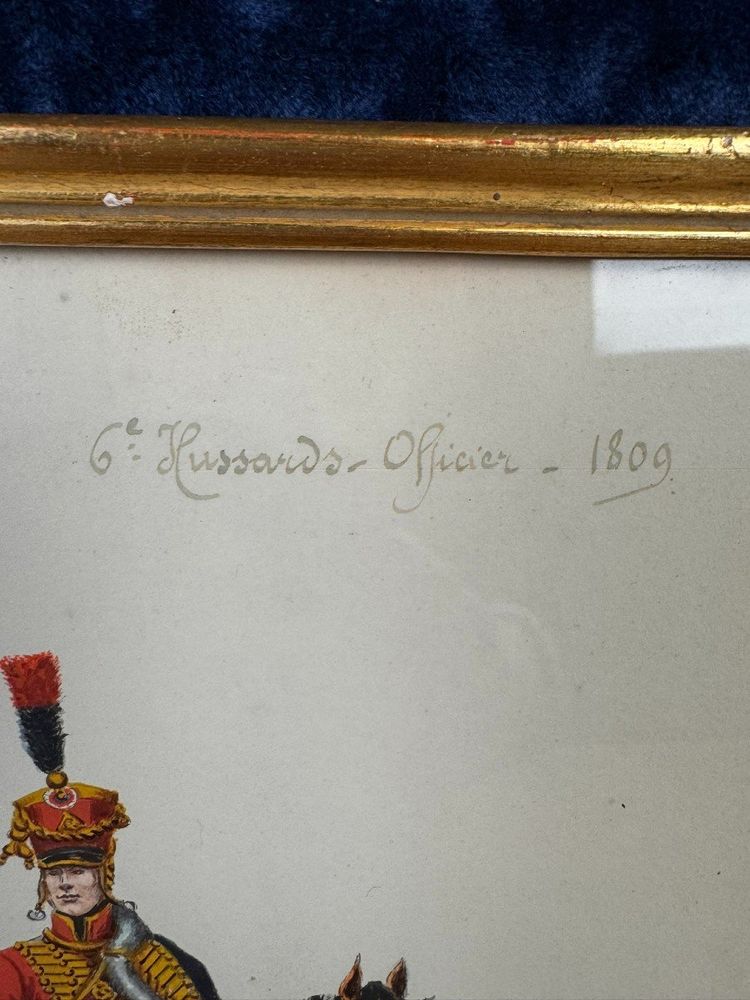 6e: Hussards - Officier - 1809